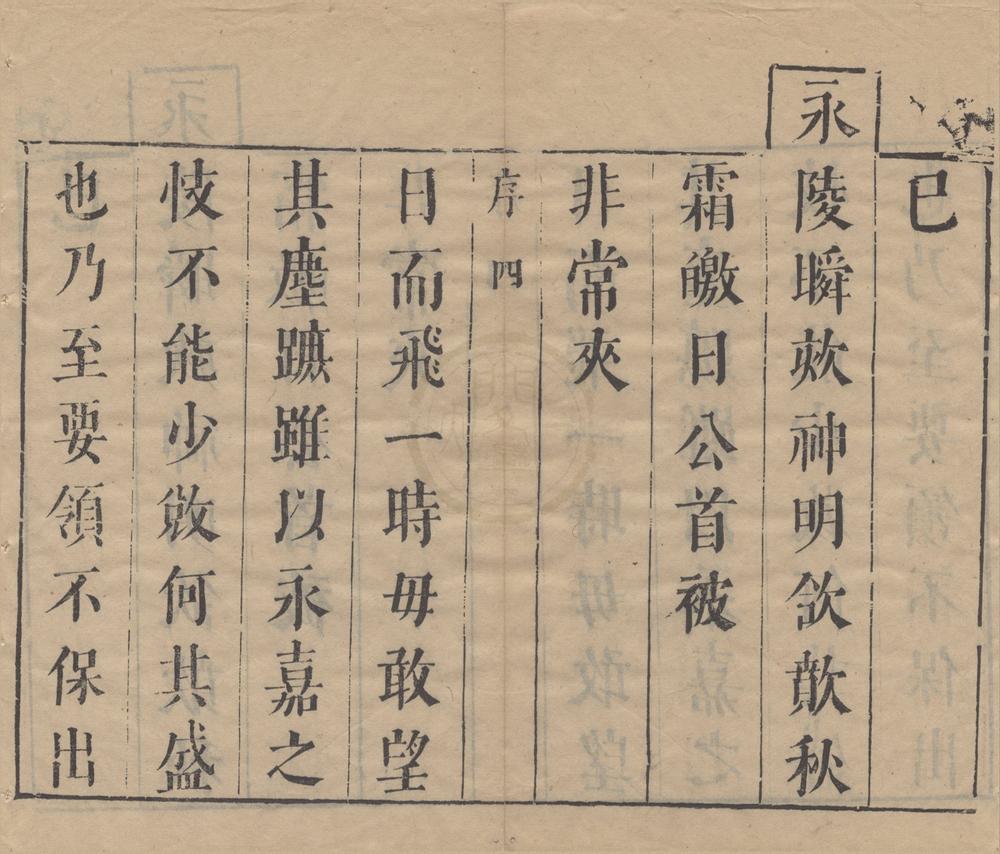 巳
永陵瞬欻神明欿歊秋
霜皦日公首被
非常夾
序 四
日而飛一時毋敢望
其塵蹠雖以永嘉之
忮不能少敓何其盛
也乃至要領不保出